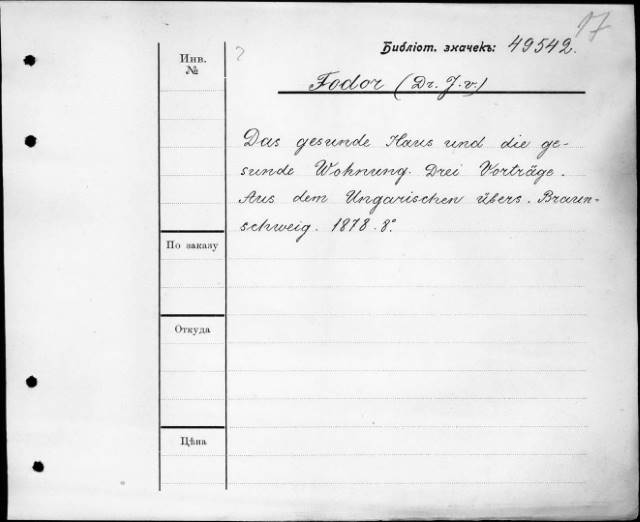 17
Инв.
№
?
Библіот. значекъ: 49542.
Fodor (Dr. J. v.)
Das gesunde Haus und die ge-
sunde Wohnung. Drei Vorträge.
Aus dem Ungarischen übers. Braun-
schweig. 1878. 8°.
По заказу
Откуда
Цѣна